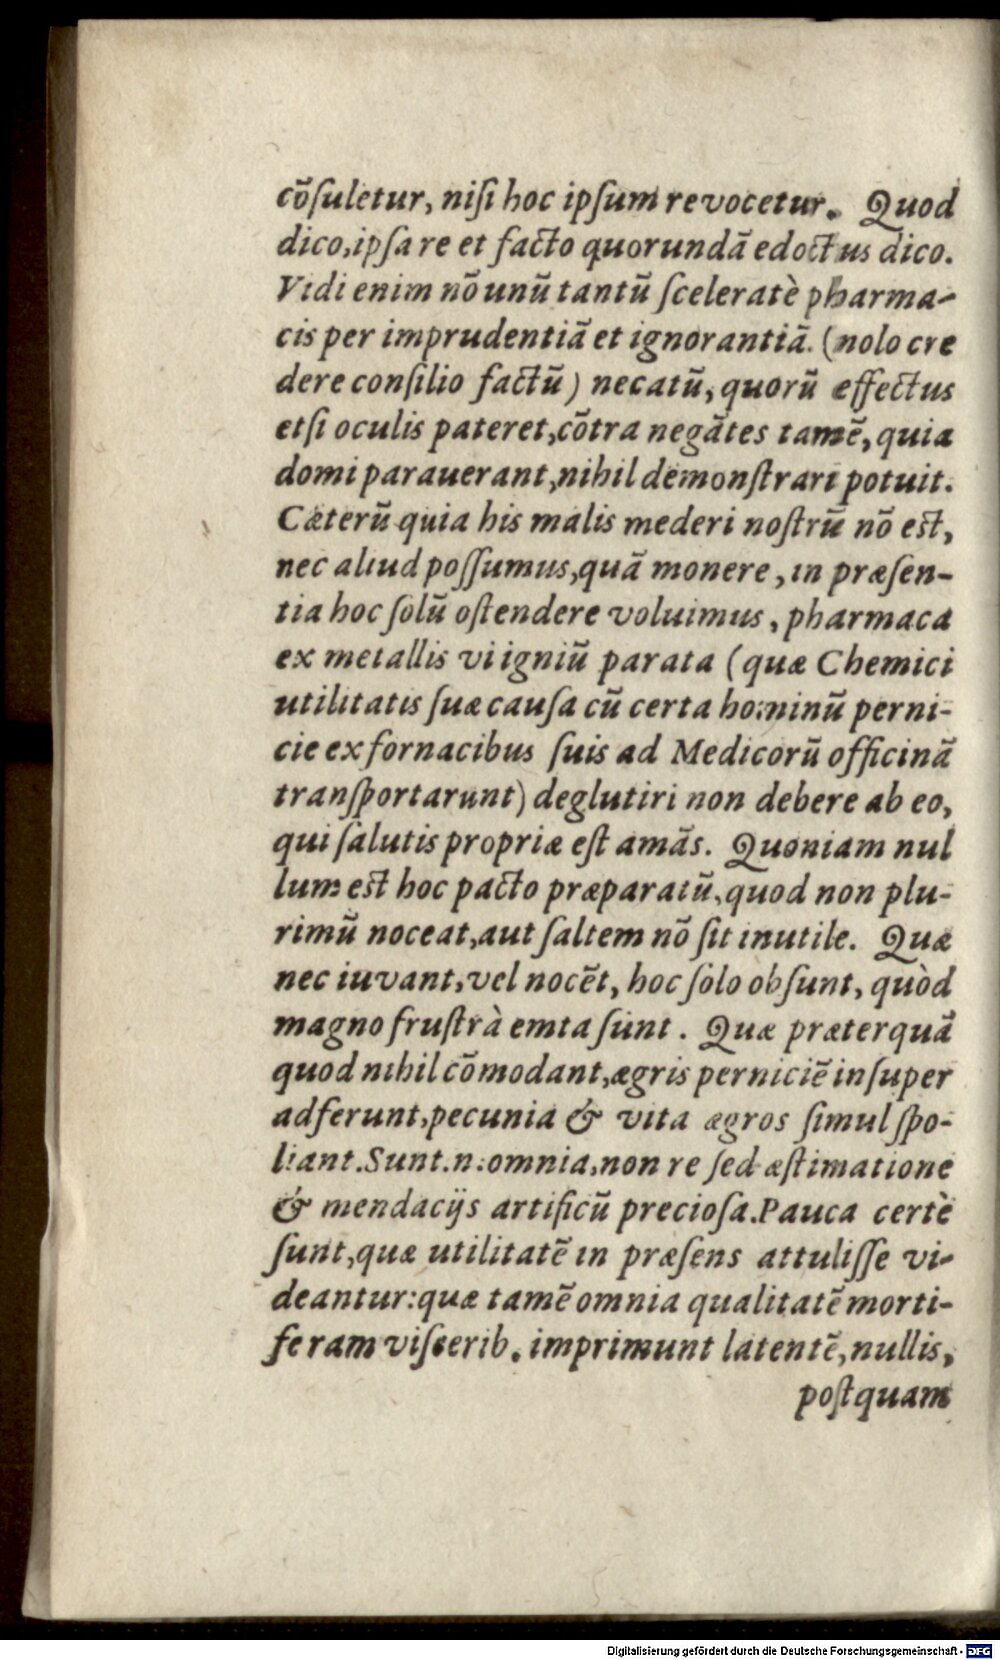 cōſuletur, niſi hoc ipſum revocetur. Quod
dico, ipſa re et facto quorundã edoctus dico.
Vidi enim nõ unũ tantũ ſceleratè pharma-
cis per imprudentiã et ignorantiã. (nolo cre
dere conſilio factũ) necatũ, quorũ effectus
etſi oculis pateret, cõtra negãtes tamẽ, quia
domi parauerant, nihil demonſtrari potuit.
Cæterũ quia his malis mederi noſtrũ nõ est,
nec aliud poſſumus, quã monere, in præſen-
tia hoc ſolũ oſtendere voluimus, pharmaca
ex metallis vi igniũ parata (quæ Chemici
utilitatis ſuæ cauſa cũ certa hominũ perni-
cie ex fornacibus ſuis ad Medicorũ officinã
tranſportarunt) deglutiri non debere ab eo,
qui ſalutis propriæ eſt amãs. Quoniam nul
lum est hoc pacto præparatũ, quod non plu-
rimũ noceat, aut ſaltem nõ ſit inutile. Quæ
nec iuvant, vel nocẽt, hoc ſolo obſunt, quòd
magno fruſtrà emta ſunt. Quæ præterquã
quod nihil cõmodant, ægris perniciẽ inſuper
adferunt, pecunia & vita ægros ſimul ſpo-
liant. Sunt.n. omnia, non re ſed æſtimatione
& mendacijs artificũ precioſa. Pauca certè
ſunt, quæ utilitatẽ in præſens attuliſſe vi-
deantur: quæ tamẽ omnia qualitatẽ morti-
feram viſcerib. imprimunt latentẽ, nullis,
poſtquam
Digitalisierung gefördert durch die Deutsche Forschungsgemeinschaft - DFG